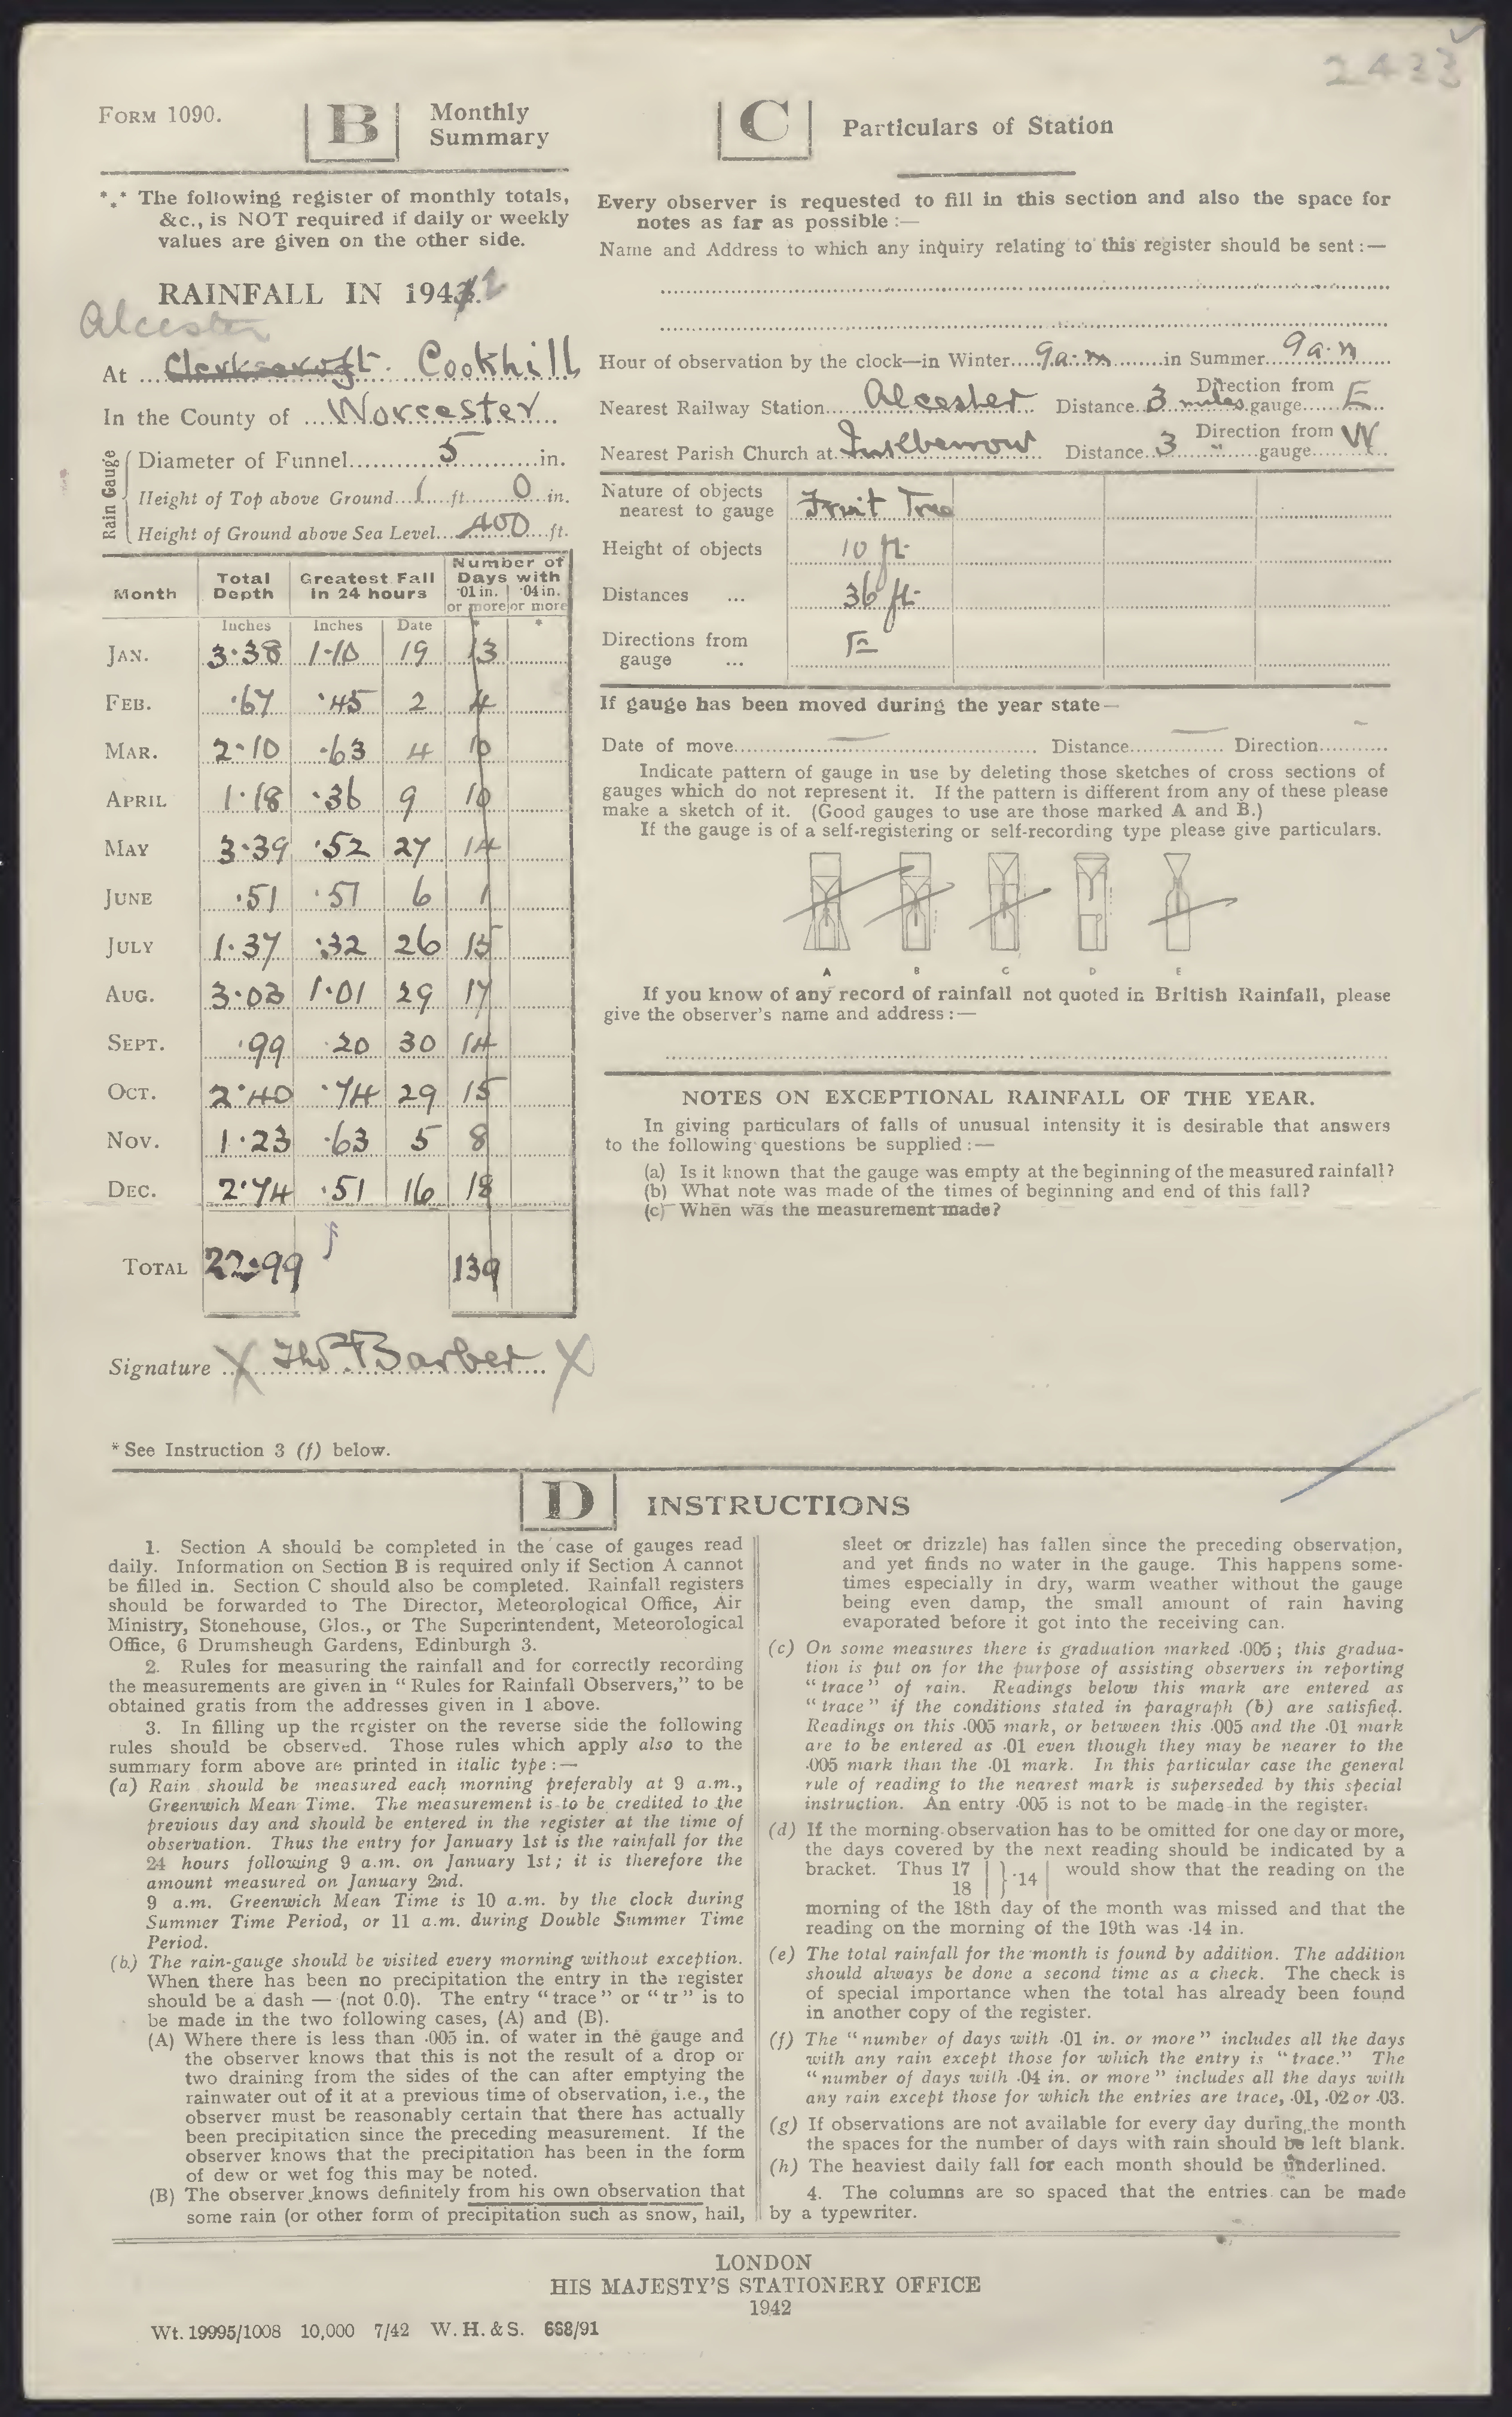 2433
FORM 1090.
B
Monthly
Summary
*** The following register of monthly totals,
&c., is NOT required if daily or weekly
values are given on the other side.
RAINFALL IN 1942
Alcester
At Clerkscroft. Cookhill
In the County of Worcester
Rain Gauge
Diameter of Funnel 5 in.
Height of Top above Ground 1 ft. 0 in.
Height of Ground above Sea Level 400 ft.
Month | Total Depth | Greatest Fall in 24 hours | Number of Days with ·01 in. or more | ·04 in. or more
Inches | Inches | Date | * | *
JAN. 3·38 1·10 19 13
FEB. ·67 ·45 2 4
MAR. 2·10 ·63 4 10
APRIL 1·18 ·36 9 10
MAY 3·39 ·52 27 14
JUNE ·51 ·51 6 1
JULY 1·37 ·32 26 15
AUG. 3·03 1·01 29 17
SEPT. ·99 ·20 30 14
OCT. 2·40 ·74 29 15
NOV. 1·23 ·63 5 8
DEC. 2·74 ·51 16 18
TOTAL 22·99 139
Signature X Thos Barber X
* See Instruction 3 (f) below.
C
Particulars of Station
Every observer is requested to fill in this section and also the space for
notes as far as possible :—
Name and Address to which any inquiry relating to this register should be sent :—
Hour of observation by the clock—in Winter 9 a.m in Summer 9 a.m
Nearest Railway Station Alcester Distance 3 miles Direction from gauge E
Nearest Parish Church at Inkberrow Distance 3 " Direction from gauge W
Nature of objects nearest to gauge Fruit Tree
Height of objects 10 ft.
Distances ... 36 ft.
Directions from gauge ... E
If gauge has been moved during the year state—
Date of move — Distance — Direction —
Indicate pattern of gauge in use by deleting those sketches of cross sections of
gauges which do not represent it. If the pattern is different from any of these please
make a sketch of it. (Good gauges to use are those marked A and B.)
If the gauge is of a self-registering or self-recording type please give particulars.
A B C D E
If you know of any record of rainfall not quoted in British Rainfall, please
give the observer's name and address :—
NOTES ON EXCEPTIONAL RAINFALL OF THE YEAR.
In giving particulars of falls of unusual intensity it is desirable that answers
to the following questions be supplied :—
(a) Is it known that the gauge was empty at the beginning of the measured rainfall?
(b) What note was made of the times of beginning and end of this fall?
(c) When was the measurement made?
D
INSTRUCTIONS
1. Section A should be completed in the case of gauges read
daily. Information on Section B is required only if Section A cannot
be filled in. Section C should also be completed. Rainfall registers
should be forwarded to The Director, Meteorological Office, Air
Ministry, Stonehouse, Glos., or The Superintendent, Meteorological
Office, 6 Drumsheugh Gardens, Edinburgh 3.
2. Rules for measuring the rainfall and for correctly recording
the measurements are given in "Rules for Rainfall Observers," to be
obtained gratis from the addresses given in 1 above.
3. In filling up the register on the reverse side the following
rules should be observed. Those rules which apply also to the
summary form above are printed in italic type :—
(a) Rain should be measured each morning preferably at 9 a.m.,
Greenwich Mean Time. The measurement is to be credited to the
previous day and should be entered in the register at the time of
observation. Thus the entry for January 1st is the rainfall for the
24 hours following 9 a.m. on January 1st; it is therefore the
amount measured on January 2nd.
9 a.m. Greenwich Mean Time is 10 a.m. by the clock during
Summer Time Period, or 11 a.m. during Double Summer Time
Period.
(b.) The rain-gauge should be visited every morning without exception.
When there has been no precipitation the entry in the register
should be a dash — (not 0.0). The entry "trace" or "tr" is to
be made in the two following cases, (A) and (B).
(A) Where there is less than ·005 in. of water in the gauge and
the observer knows that this is not the result of a drop or
two draining from the sides of the can after emptying the
rainwater out of it at a previous time of observation, i.e., the
observer must be reasonably certain that there has actually
been precipitation since the preceding measurement. If the
observer knows that the precipitation has been in the form
of dew or wet fog this may be noted.
(B) The observer knows definitely from his own observation that
some rain (or other form of precipitation such as snow, hail,
sleet or drizzle) has fallen since the preceding observation,
and yet finds no water in the gauge. This happens some-
times especially in dry, warm weather without the gauge
being even damp, the small amount of rain having
evaporated before it got into the receiving can.
(c) On some measures there is graduation marked ·005; this gradua-
tion is put on for the purpose of assisting observers in reporting
"trace" of rain. Readings below this mark are entered as
"trace" if the conditions stated in paragraph (b) are satisfied.
Readings on this ·005 mark, or between this ·005 and the ·01 mark
are to be entered as ·01 even though they may be nearer to the
·005 mark than the ·01 mark. In this particular case the general
rule of reading to the nearest mark is superseded by this special
instruction. An entry ·005 is not to be made in the register.
(d) If the morning observation has to be omitted for one day or more,
the days covered by the next reading should be indicated by a
bracket. Thus 17 | } ·14 | would show that the reading on the
18
morning of the 18th day of the month was missed and that the
reading on the morning of the 19th was ·14 in.
(e) The total rainfall for the month is found by addition. The addition
should always be done a second time as a check. The check is
of special importance when the total has already been found
in another copy of the register.
(f) The "number of days with ·01 in. or more" includes all the days
with any rain except those for which the entry is "trace." The
"number of days with ·04 in. or more" includes all the days with
any rain except those for which the entries are trace, ·01, ·02 or ·03.
(g) If observations are not available for every day during the month
the spaces for the number of days with rain should be left blank.
(h) The heaviest daily fall for each month should be underlined.
4. The columns are so spaced that the entries can be made
by a typewriter.
LONDON
HIS MAJESTY'S STATIONERY OFFICE
1942
Wt. 19995/1008 10,000 7/42 W. H. & S. 668/91